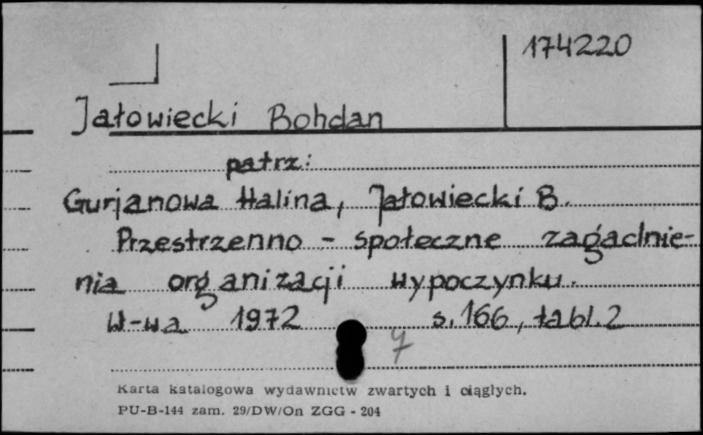 174220
Jałowiecki Bohdan
patrz:
Gurjanowa Halina, Jałowiecki B.
Przestrzenno - społeczne zagadnie-
nia organizacji wypoczynku.
W-wa 1972 s. 166, tabl. 2
7
Karta katalogowa wydawnictw zwartych i ciągłych.
PU-B-144 zam. 29/DW/On ZGG - 204